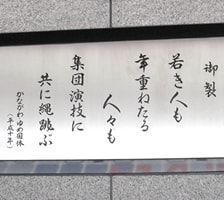 御製
若き人も
年重ねたる
人々も
集団演技に
共に縄跳ぶ
かながわ・ゆめ国体
(平成十年)